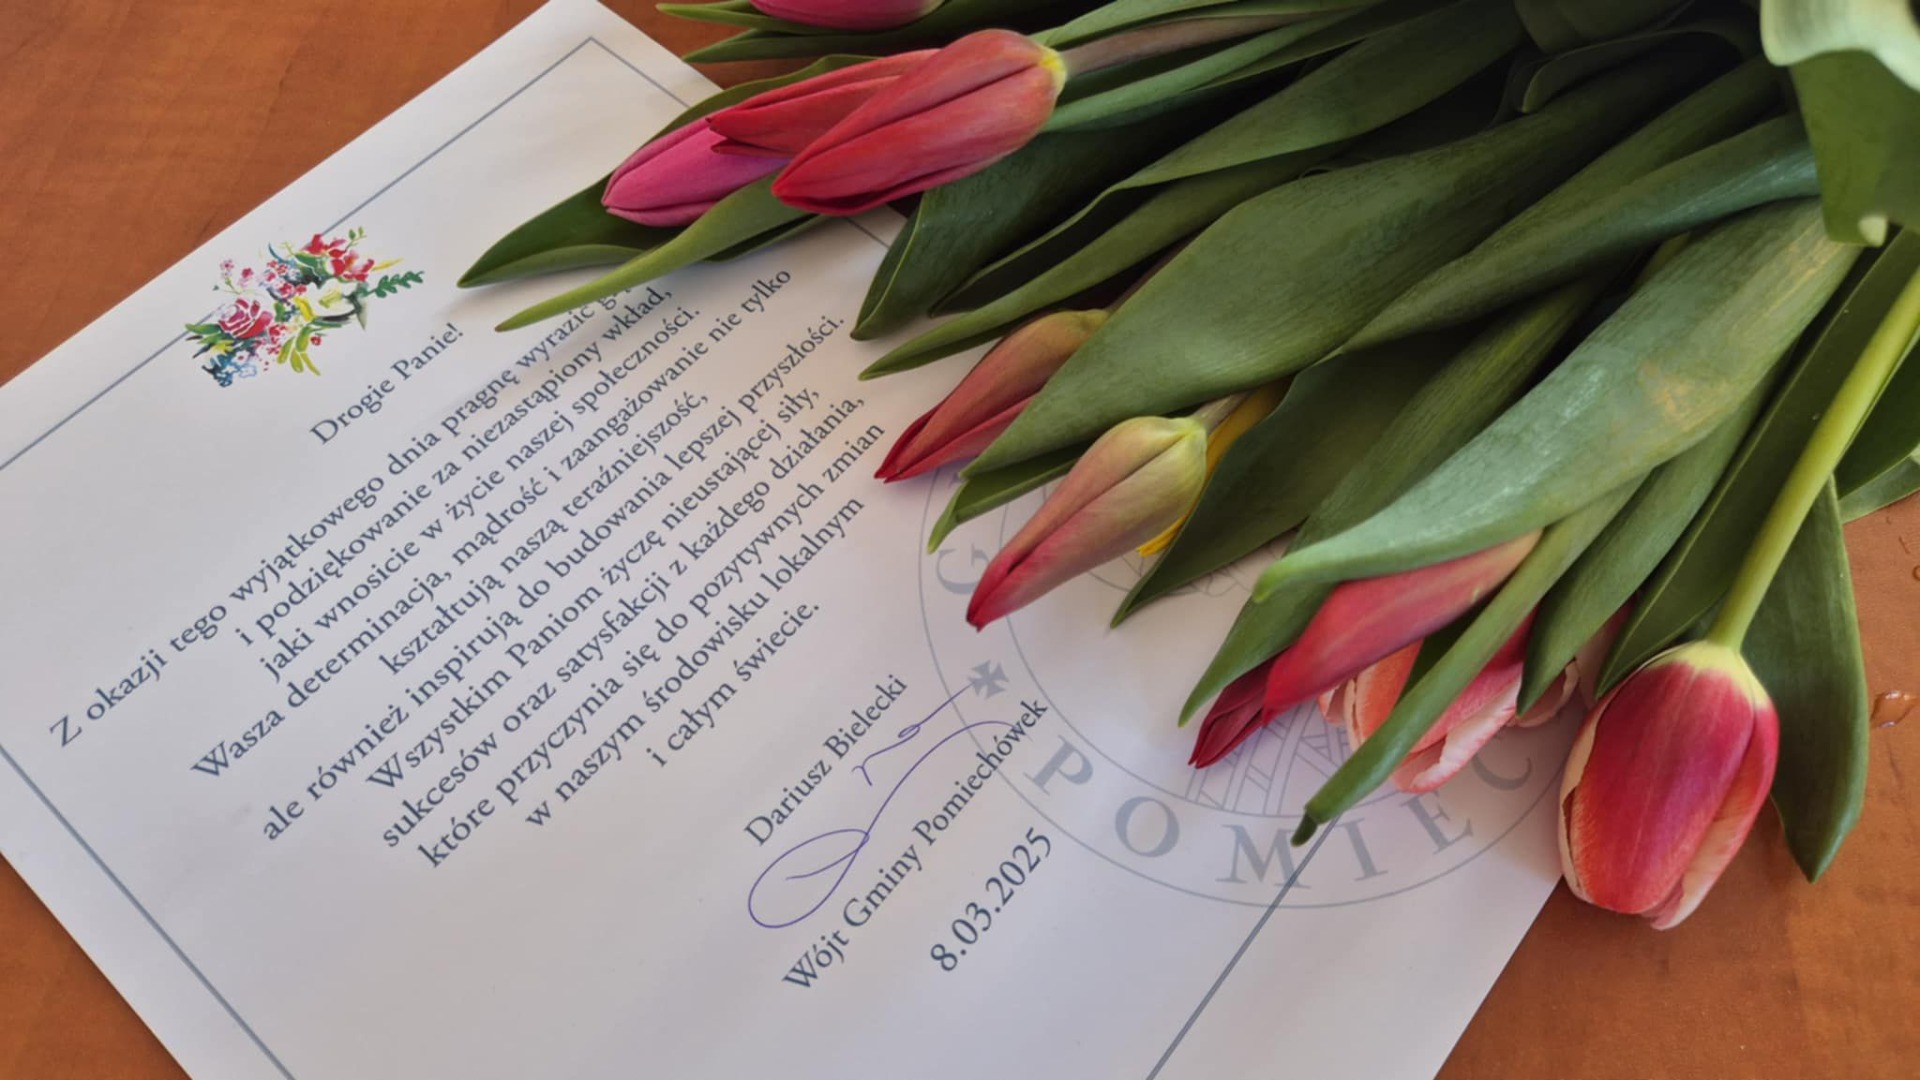 Drogie Panie!
Z okazji tego wyjątkowego dnia pragnę wyrazić
i podziękowanie za niezastąpiony wkład,
jaki wnosicie w życie naszej społeczności.
Wasza determinacja, mądrość i zaangażowanie nie tylko
kształtują naszą teraźniejszość,
ale również inspirują do budowania lepszej przyszłości.
Wszystkim Paniom życzę nieustającej siły,
sukcesów oraz satysfakcji z każdego działania,
które przyczynia się do pozytywnych zmian
w naszym środowisku lokalnym
i całym świecie.
Dariusz Bielecki
Wójt Gminy Pomiechówek
8.03.2025
G
POMIEC